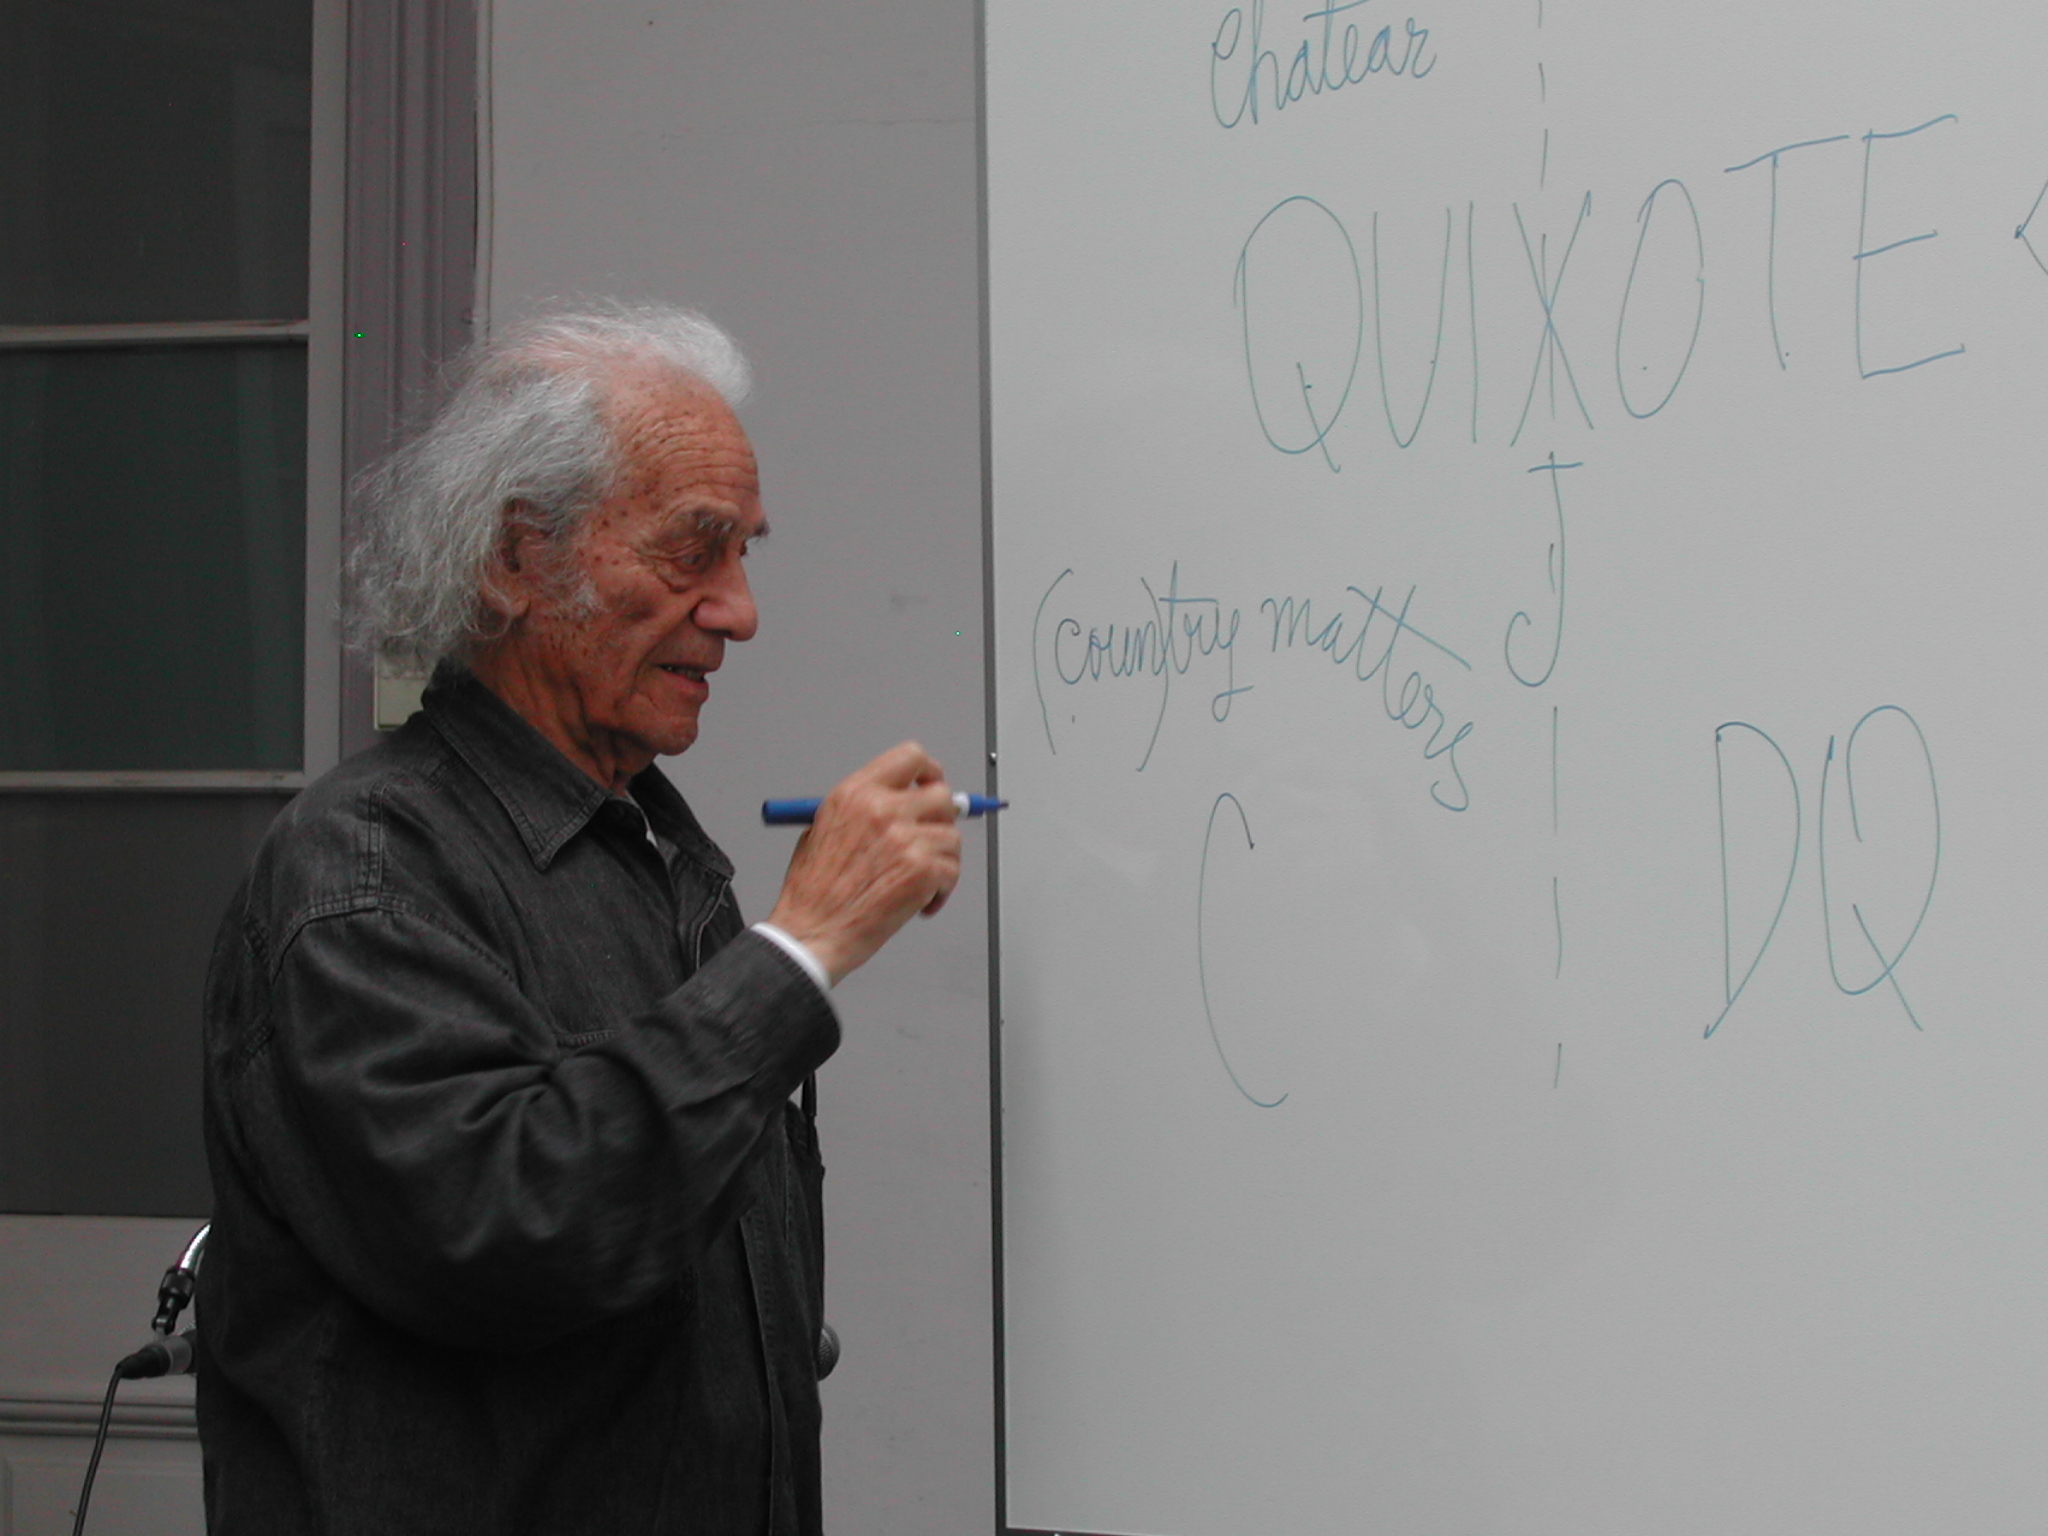 Chatear
QUIXOTE <
J
(coun)try matters
C DQ